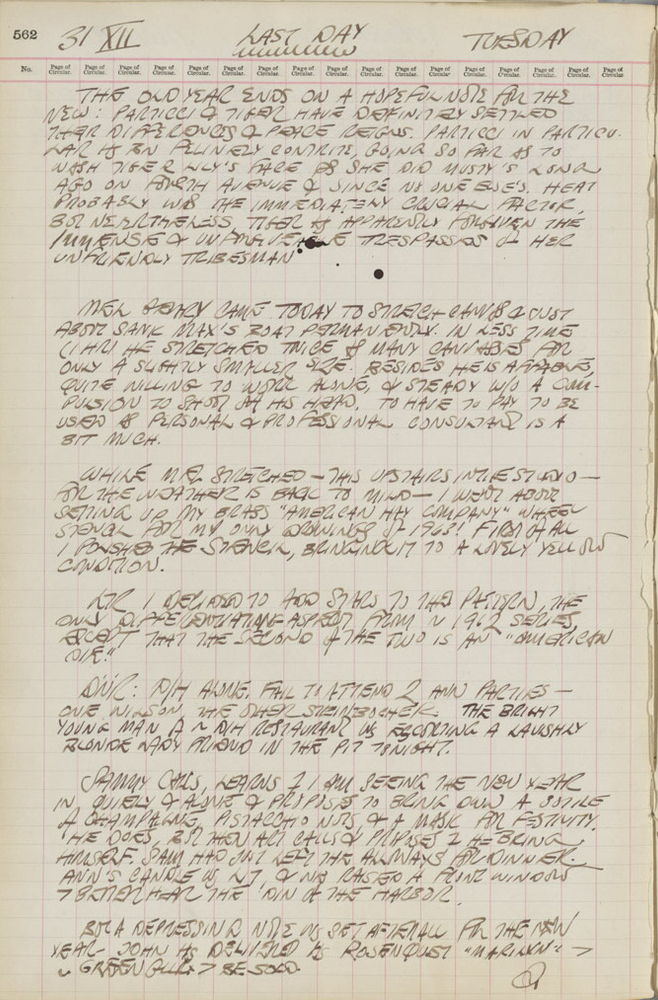 562 31 XII LAST DAY TUESDAY
No. Page of Circular. Page of Circular. Page of Circular. Page of Circular. Page of Circular. Page of Circular. Page of Circular. Page of Circular. Page of Circular. Page of Circular. Page of Circular. Page of Circular. Page of Circular. Page of Circular. Page of Circular. Page of Circular. Page of Circular.
THE OLD YEAR ENDS ON A HOPEFUL NOTE FOR THE
NEW: PARTICCI & TIGER HAVE DEFINITELY SETTLED
THEIR DIFFERENCES & PEACE REIGNS. PARTICCI IN PARTICU-
LAR IS FELINELY CONTRITE, GOING SO FAR AS TO
WASH TIGER LILY'S FACE AS SHE DID MUSTY'S LONG
AGO ON FOURTH AVENUE & SINCE NO ONE ELSE'S. HEAT
PROBABLY WAS THE IMMEDIATELY CRUCIAL FACTOR,
BUT NEVERTHELESS TIGER HAS APPARENTLY FORGIVEN THE
IMMENSE & TRESPASSES OF HER
UNFRIENDLY TRIBESMAN
MEL CAME TODAY TO STRETCH CANVAS & JUST
ABOUT SANK MAX'S BOAT PERMANENTLY. IN LESS TIME
(1 HR) HE STRETCHED TWICE AS MANY CANVASES FOR
ONLY A SLIGHTLY SMALLER BESIDES HE IS AFFABLE,
QUITE WILLING TO WORK ALONE, & STEADY W/O A COM-
PULSION TO SHOOT OFF HIS HEAD. TO HAVE TO PAY TO BE
USED AS PERSONAL & PROFESSIONAL CONSULTANT IS A
BIT MUCH.
WHILE MEL STRETCHED — THIS UPSTAIRS IN THE STUDIO —
FOR THE WEATHER IS BACK TO MILD — I WENT ABOUT
SETTING UP MY BRASS "AMERICAN HAY COMPANY" WHEEL
STENCIL FOR MY ONLY DRAWINGS OF 1963! FIRST OF ALL
I POLISHED THE STENCIL, BRINGING IT TO A LOVELY YELLOW
CONDITION.
I DECIDED TO ADD STARS TO THE PATTERN, THE
ONLY DIFFERENTIATING ASPECT FROM 1962 SERIES,
EXCEPT THAT THE SECOND OF THE TWO IS AN "AMERICAN
DIE."
DINR: D/H ALONE. FAIL TO ATTEND 2 ANN PARTIES —
ONE WILSON, THE OTHER STEINBOCHEK. THE BRIGHT
YOUNG MAN D/H RESTAURANT WAS ESCORTING A LAVISHLY
BLONDE LADY FRIEND IN THE PIT TONIGHT.
SAMMY CALLS, LEARNS I AM SEEING THE NEW YEAR
IN, QUIETLY & ALONE & PROPOSES TO BRING DOWN A BOTTLE
OF CHAMPAGNE, PISTACCHIO NUTS & A MASK FOR FESTIVITY.
HE DOES, BUT THEN ART CALLS & PROPOSES HE BRING
HIMSELF. SAM HAD JUST LEFT THE FOR DINNER.
ANN'S CANDLE WAS LIT, & WE RAISED A FRONT WINDOW
BETTER HEAR THE DIN OF THE HARBOR.
BUT A DEPRESSING NOTE WAS SET AFTER ALL FOR THE NEW
YEAR — JOHN HAS DELIVERED HIS ROSENQUIST "MARILYN"
GREEN GALL BE SOLD.